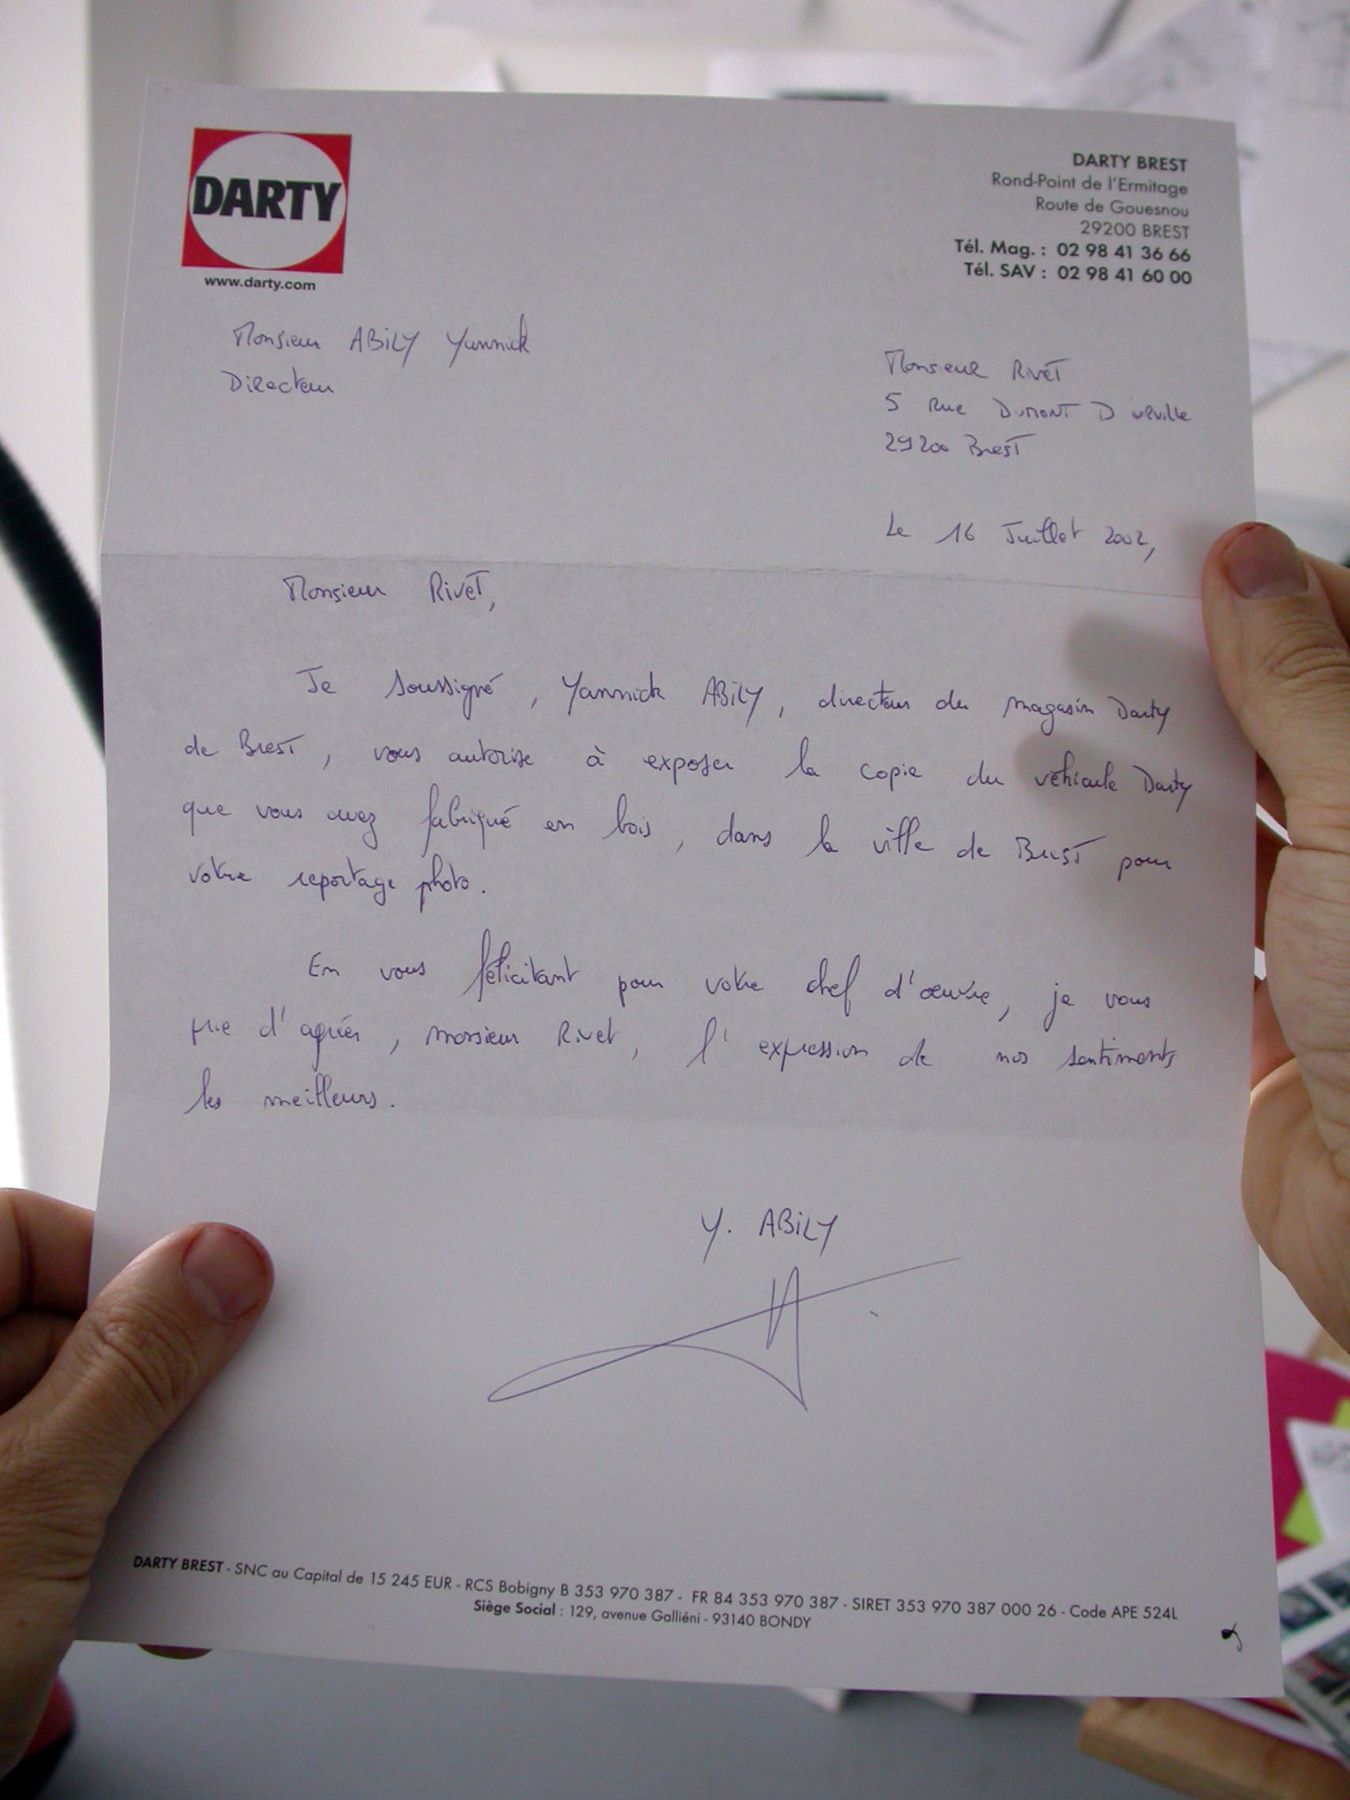 DARTY
www.darty.com
DARTY BREST
Rond-Point de l'Ermitage
Route de Gouesnou
29200 BREST
Tél. Mag. : 02 98 41 36 66
Tél. SAV : 02 98 41 60 00
Monsieur ABILY Yannick
Directeur
Monsieur RIVET
5 Rue DUMONT D'URVILLE
29200 BREST
Le 16 Juillet 2002,
Monsieur RIVET,
Je soussigné, Yannick ABILY, directeur du magasin Darty
de BREST, vous autorise à exposer la copie du véhicule Darty
que vous avez fabriqué en bois, dans la ville de BREST pour
votre reportage photo.
En vous félicitant pour votre chef d'œuvre, je vous
prie d'agréer, monsieur Rivet, l'expression de nos sentiments
les meilleurs.
Y. ABILY
DARTY BREST - SNC au Capital de 15 245 EUR - RCS Bobigny B 353 970 387 - FR 84 353 970 387 - SIRET 353 970 387 000 26 - Code APE 524L
Siège Social : 129, avenue Galliéni - 93140 BONDY